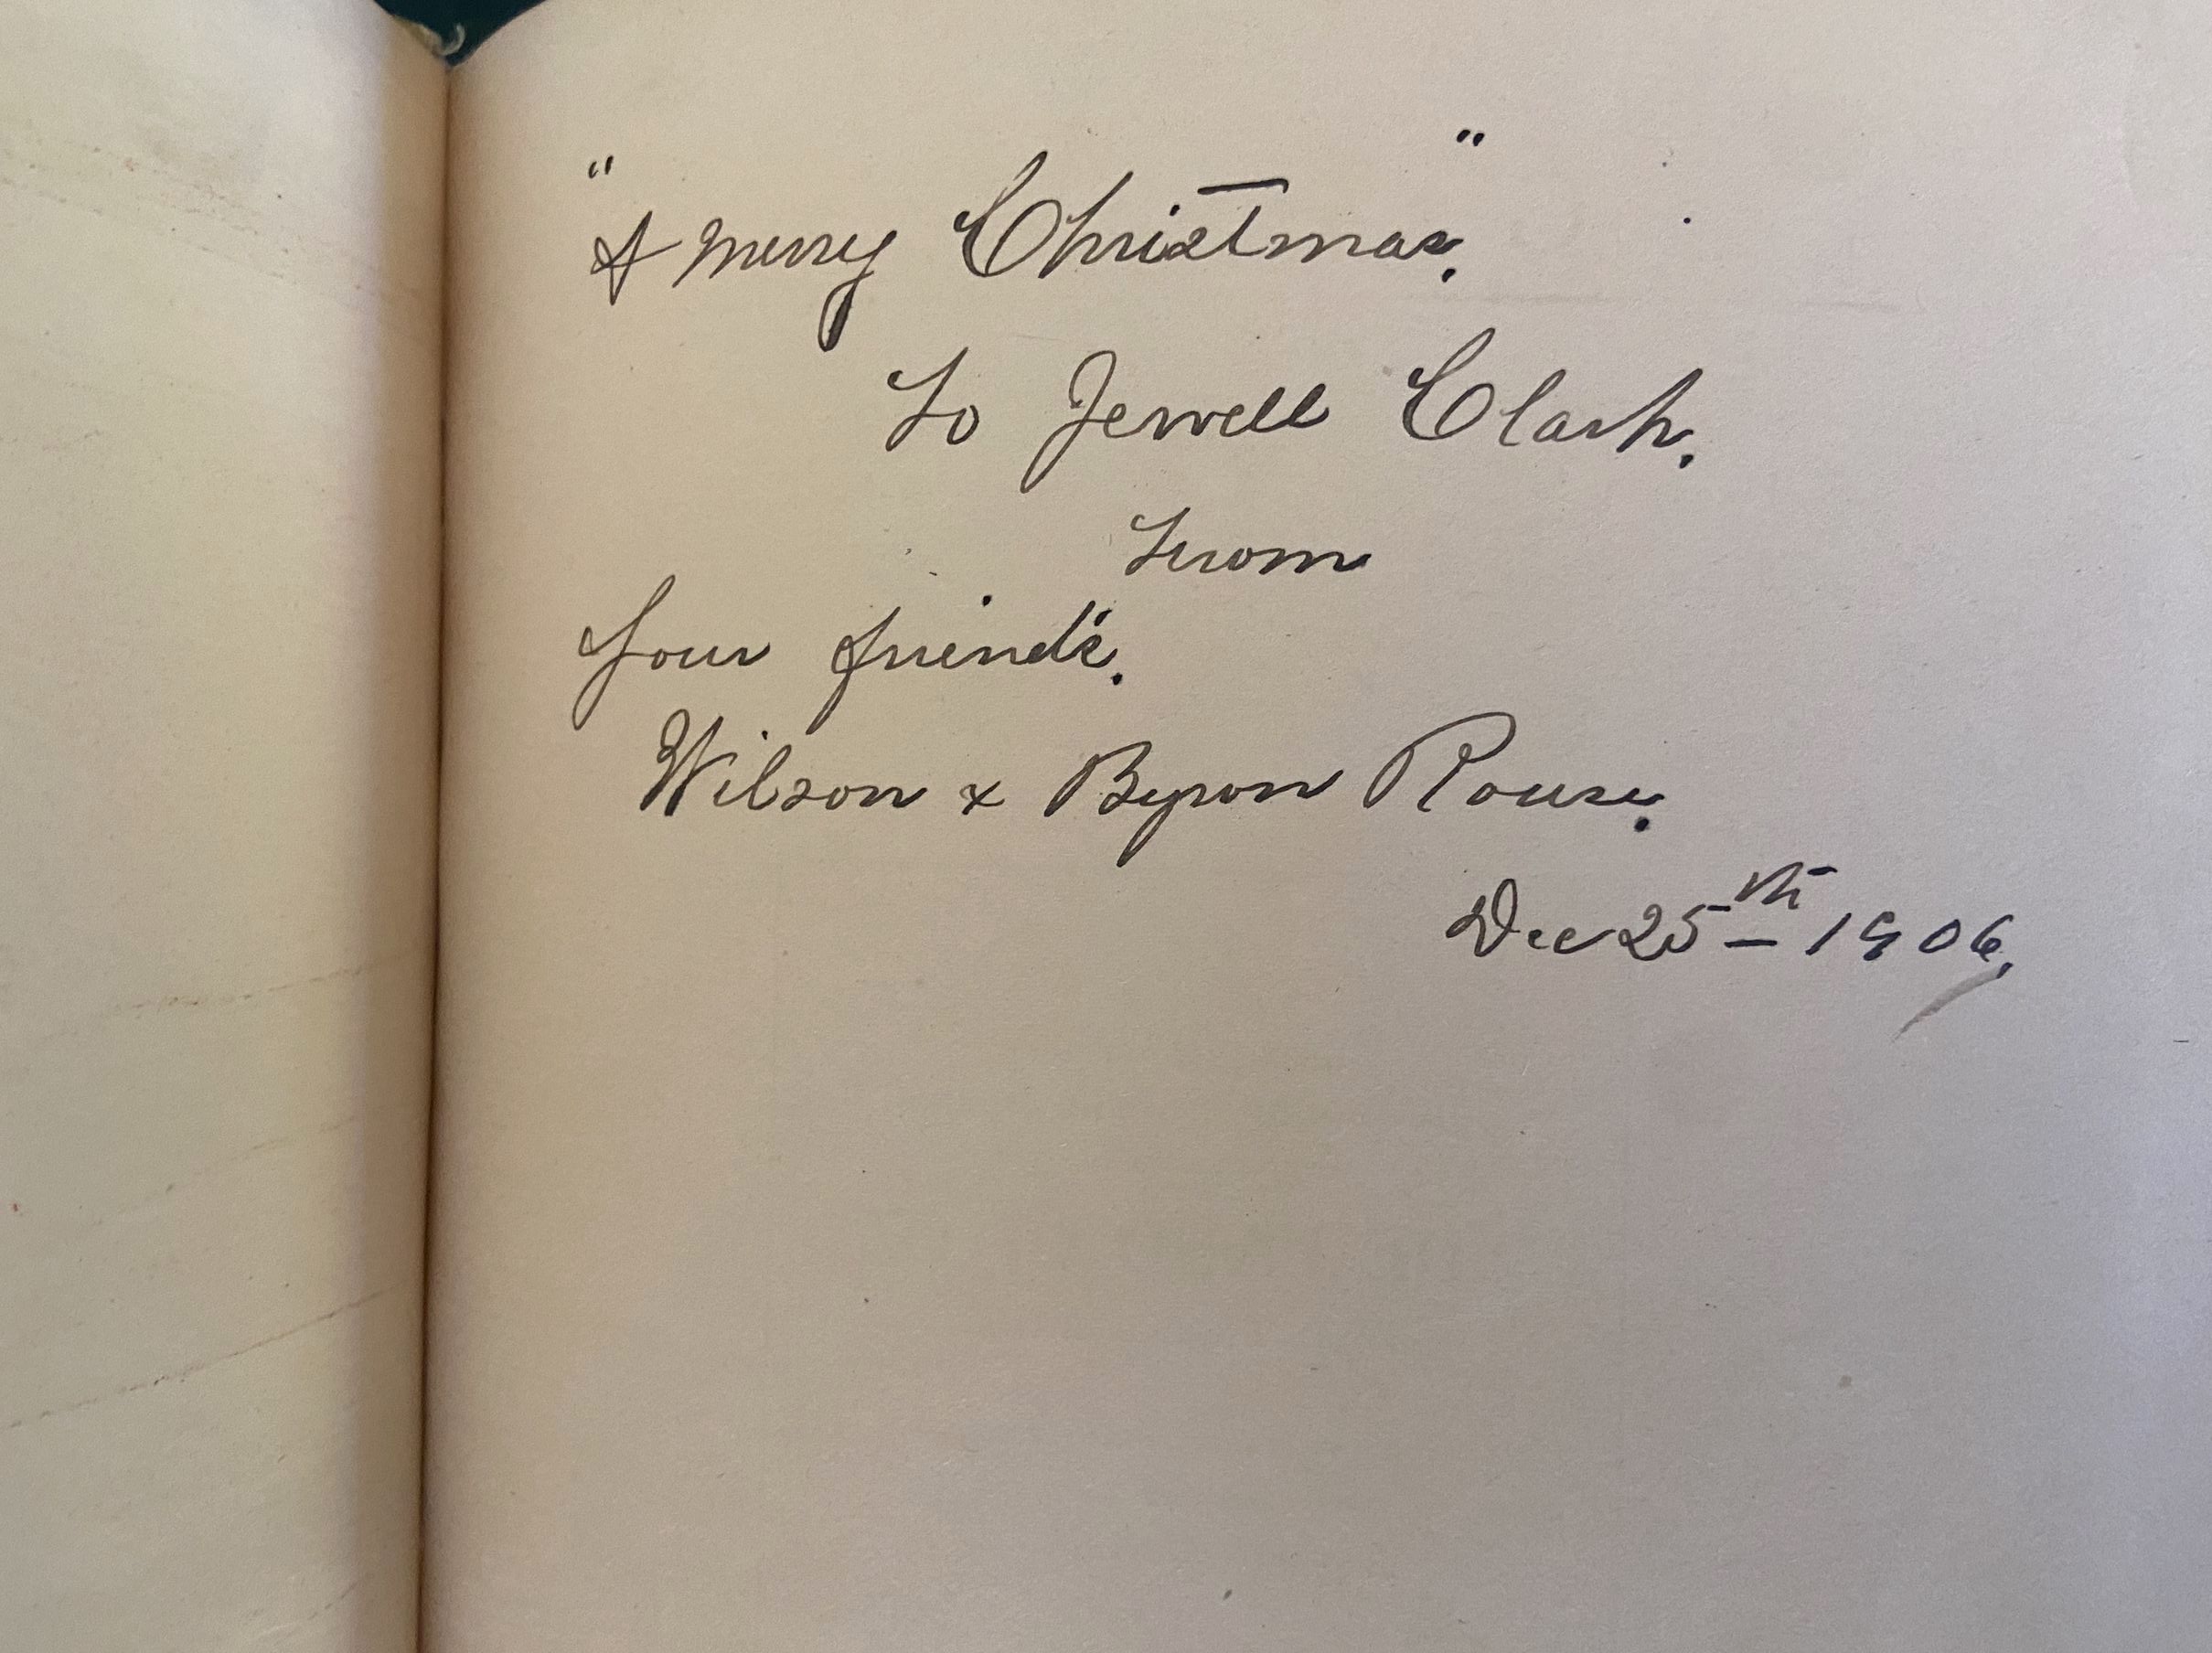 "A Merry Christmas."
To Jewell Clark.
From
Your friend's.
Wilson & Byron Rouse.
Dec 25th 1906.